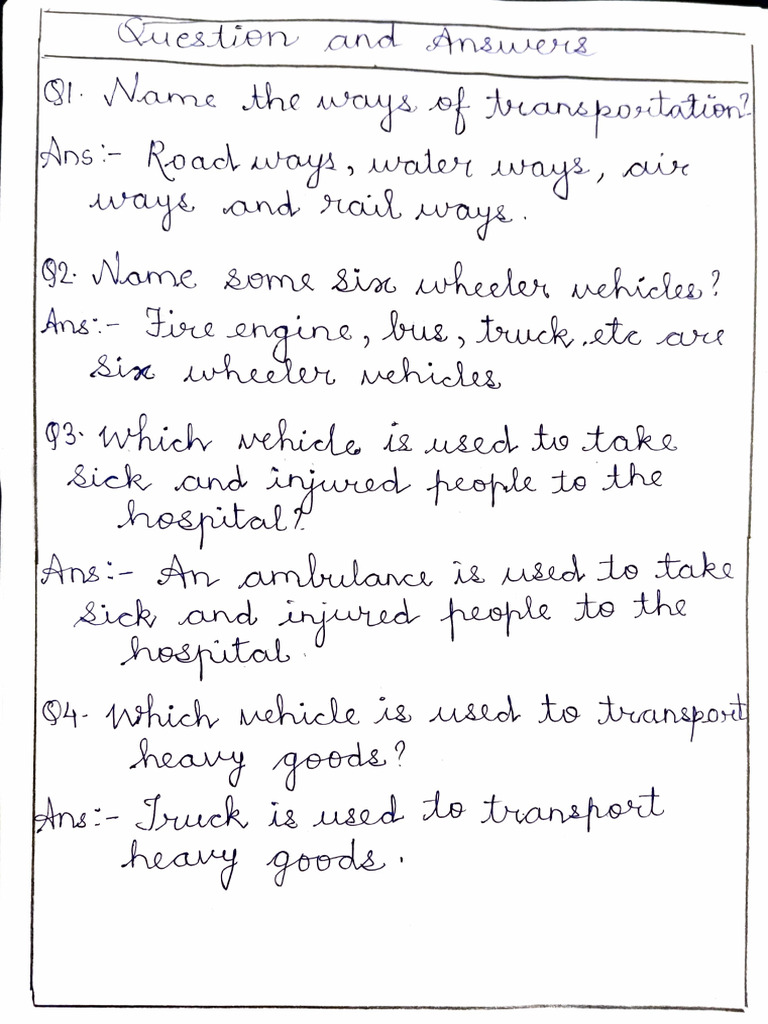 Question and Answers
Q1. Name the ways of transportation?
Ans:- Road ways, water ways, air
ways and rail ways.
Q2. Name some six wheeler vehicles?
Ans:- Fire engine, bus, truck, etc are
six wheeler vehicles
Q3. Which vehicle is used to take
sick and injured people to the
hospital?
Ans:- An ambulance is used to take
sick and injured people to the
hospital.
Q4. Which vehicle is used to transport
heavy goods?
Ans:- Truck is used to transport
heavy goods.